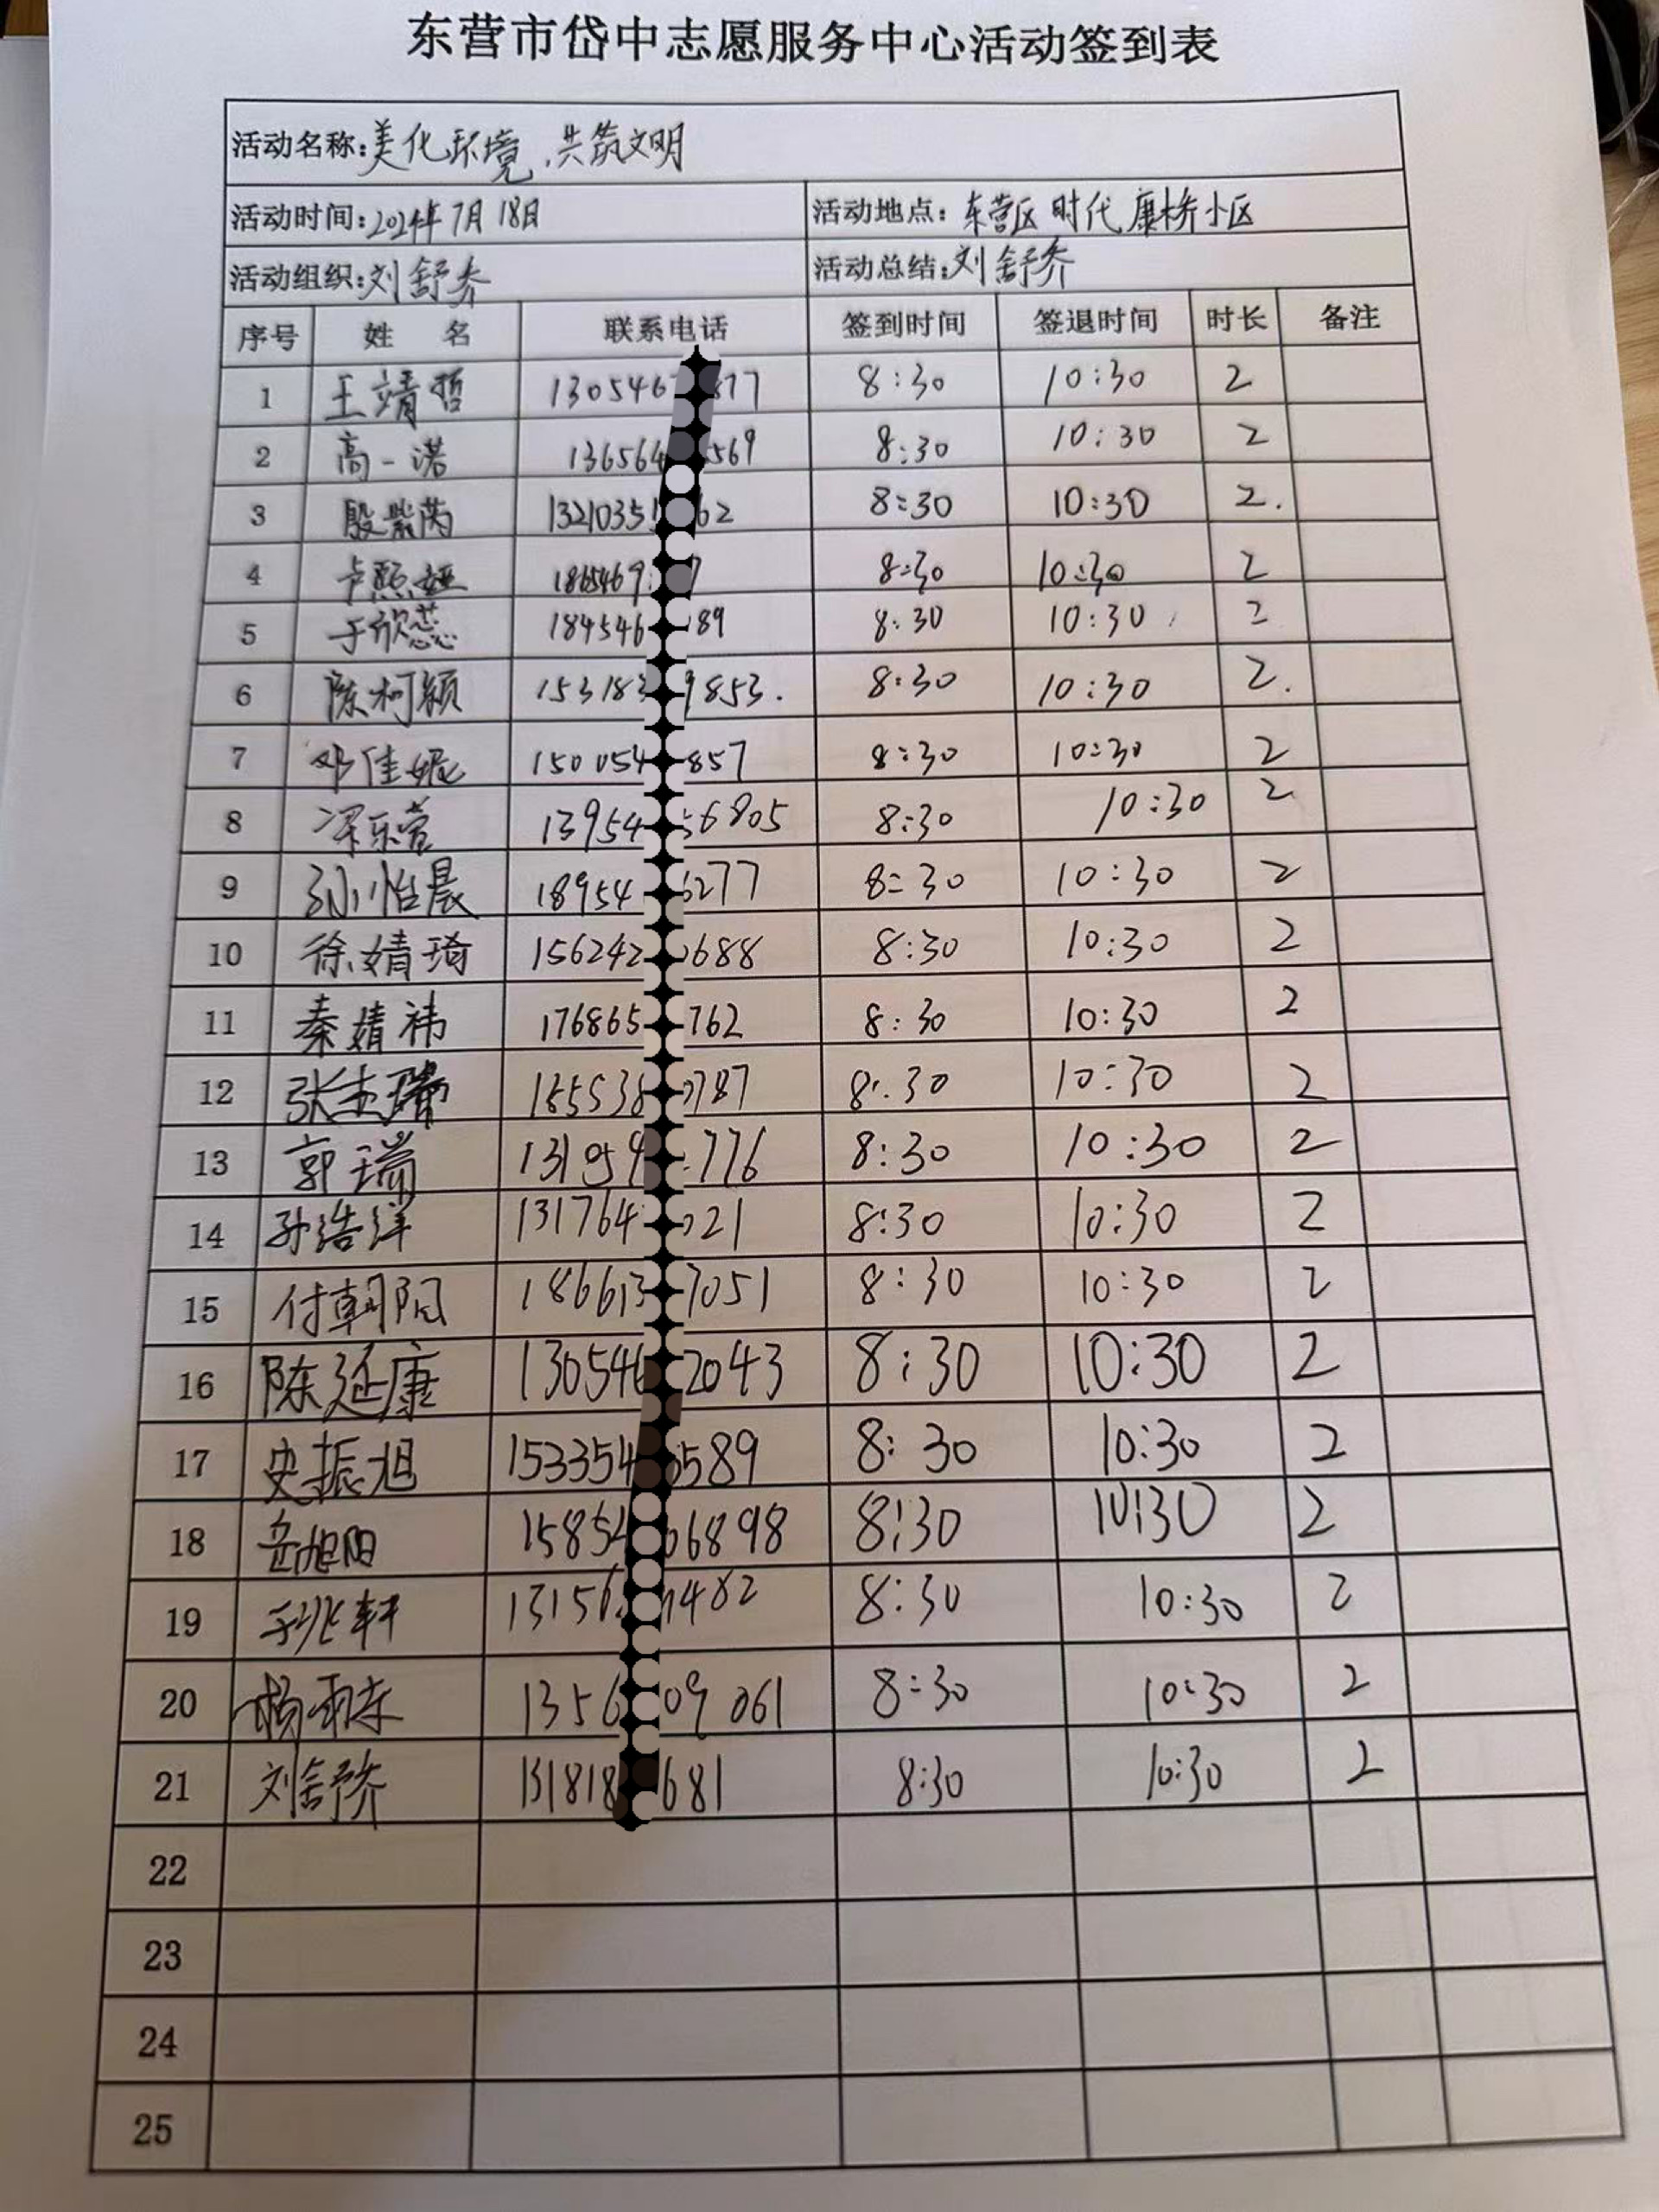 东营市岱中志愿服务中心活动签到表
活动名称:美化环境、共筑文明
活动时间:2024年7月18日 活动地点:东营区时代康桥小区
活动组织:刘舒乔 活动总结:刘舒乔
序号 姓 名 联系电话 签到时间 签退时间 时长 备注
1 王靖哲 130546 877 8:30 10:30 2
2 高一诺 136564 569 8:30 10:30 2
3 殷紫芮 1321035 62 8:30 10:30 2.
4 卢熙娅 1865469 7 8:30 10:30 2
5 于欣蕊 184546 189 8:30 10:30 2
6 陈柯颖 153183 9853. 8:30 10:30 2.
7 邓佳妮 150054 857 8:30 10:30 2
8 13954 56805 8:30 10:30 2
9 孙怡晨 18954 6277 8:30 10:30 2
10 徐婧琦 156242 0688 8:30 10:30 2
11 秦婧祎 176865 762 8:30 10:30 2
12 张 185538 0787 8:30 10:30 2
13 郭瑞 131059 776 8:30 10:30 2
14 孙浩洋 131764 021 8:30 10:30 2
15 付朝阳 186613 7051 8:30 10:30 2
16 陈延康 130546 2043 8:30 10:30 2
17 史振旭 153354 5589 8:30 10:30 2
18 岳旭阳 15854 66898 8:30 10:30 2
19 于兆轩 13156 482 8:30 10:30 2
20 杨雨东 1356 09061 8:30 10:30 2
21 刘舒乔 131818 681 8:30 10:30 2
22
23
24
25